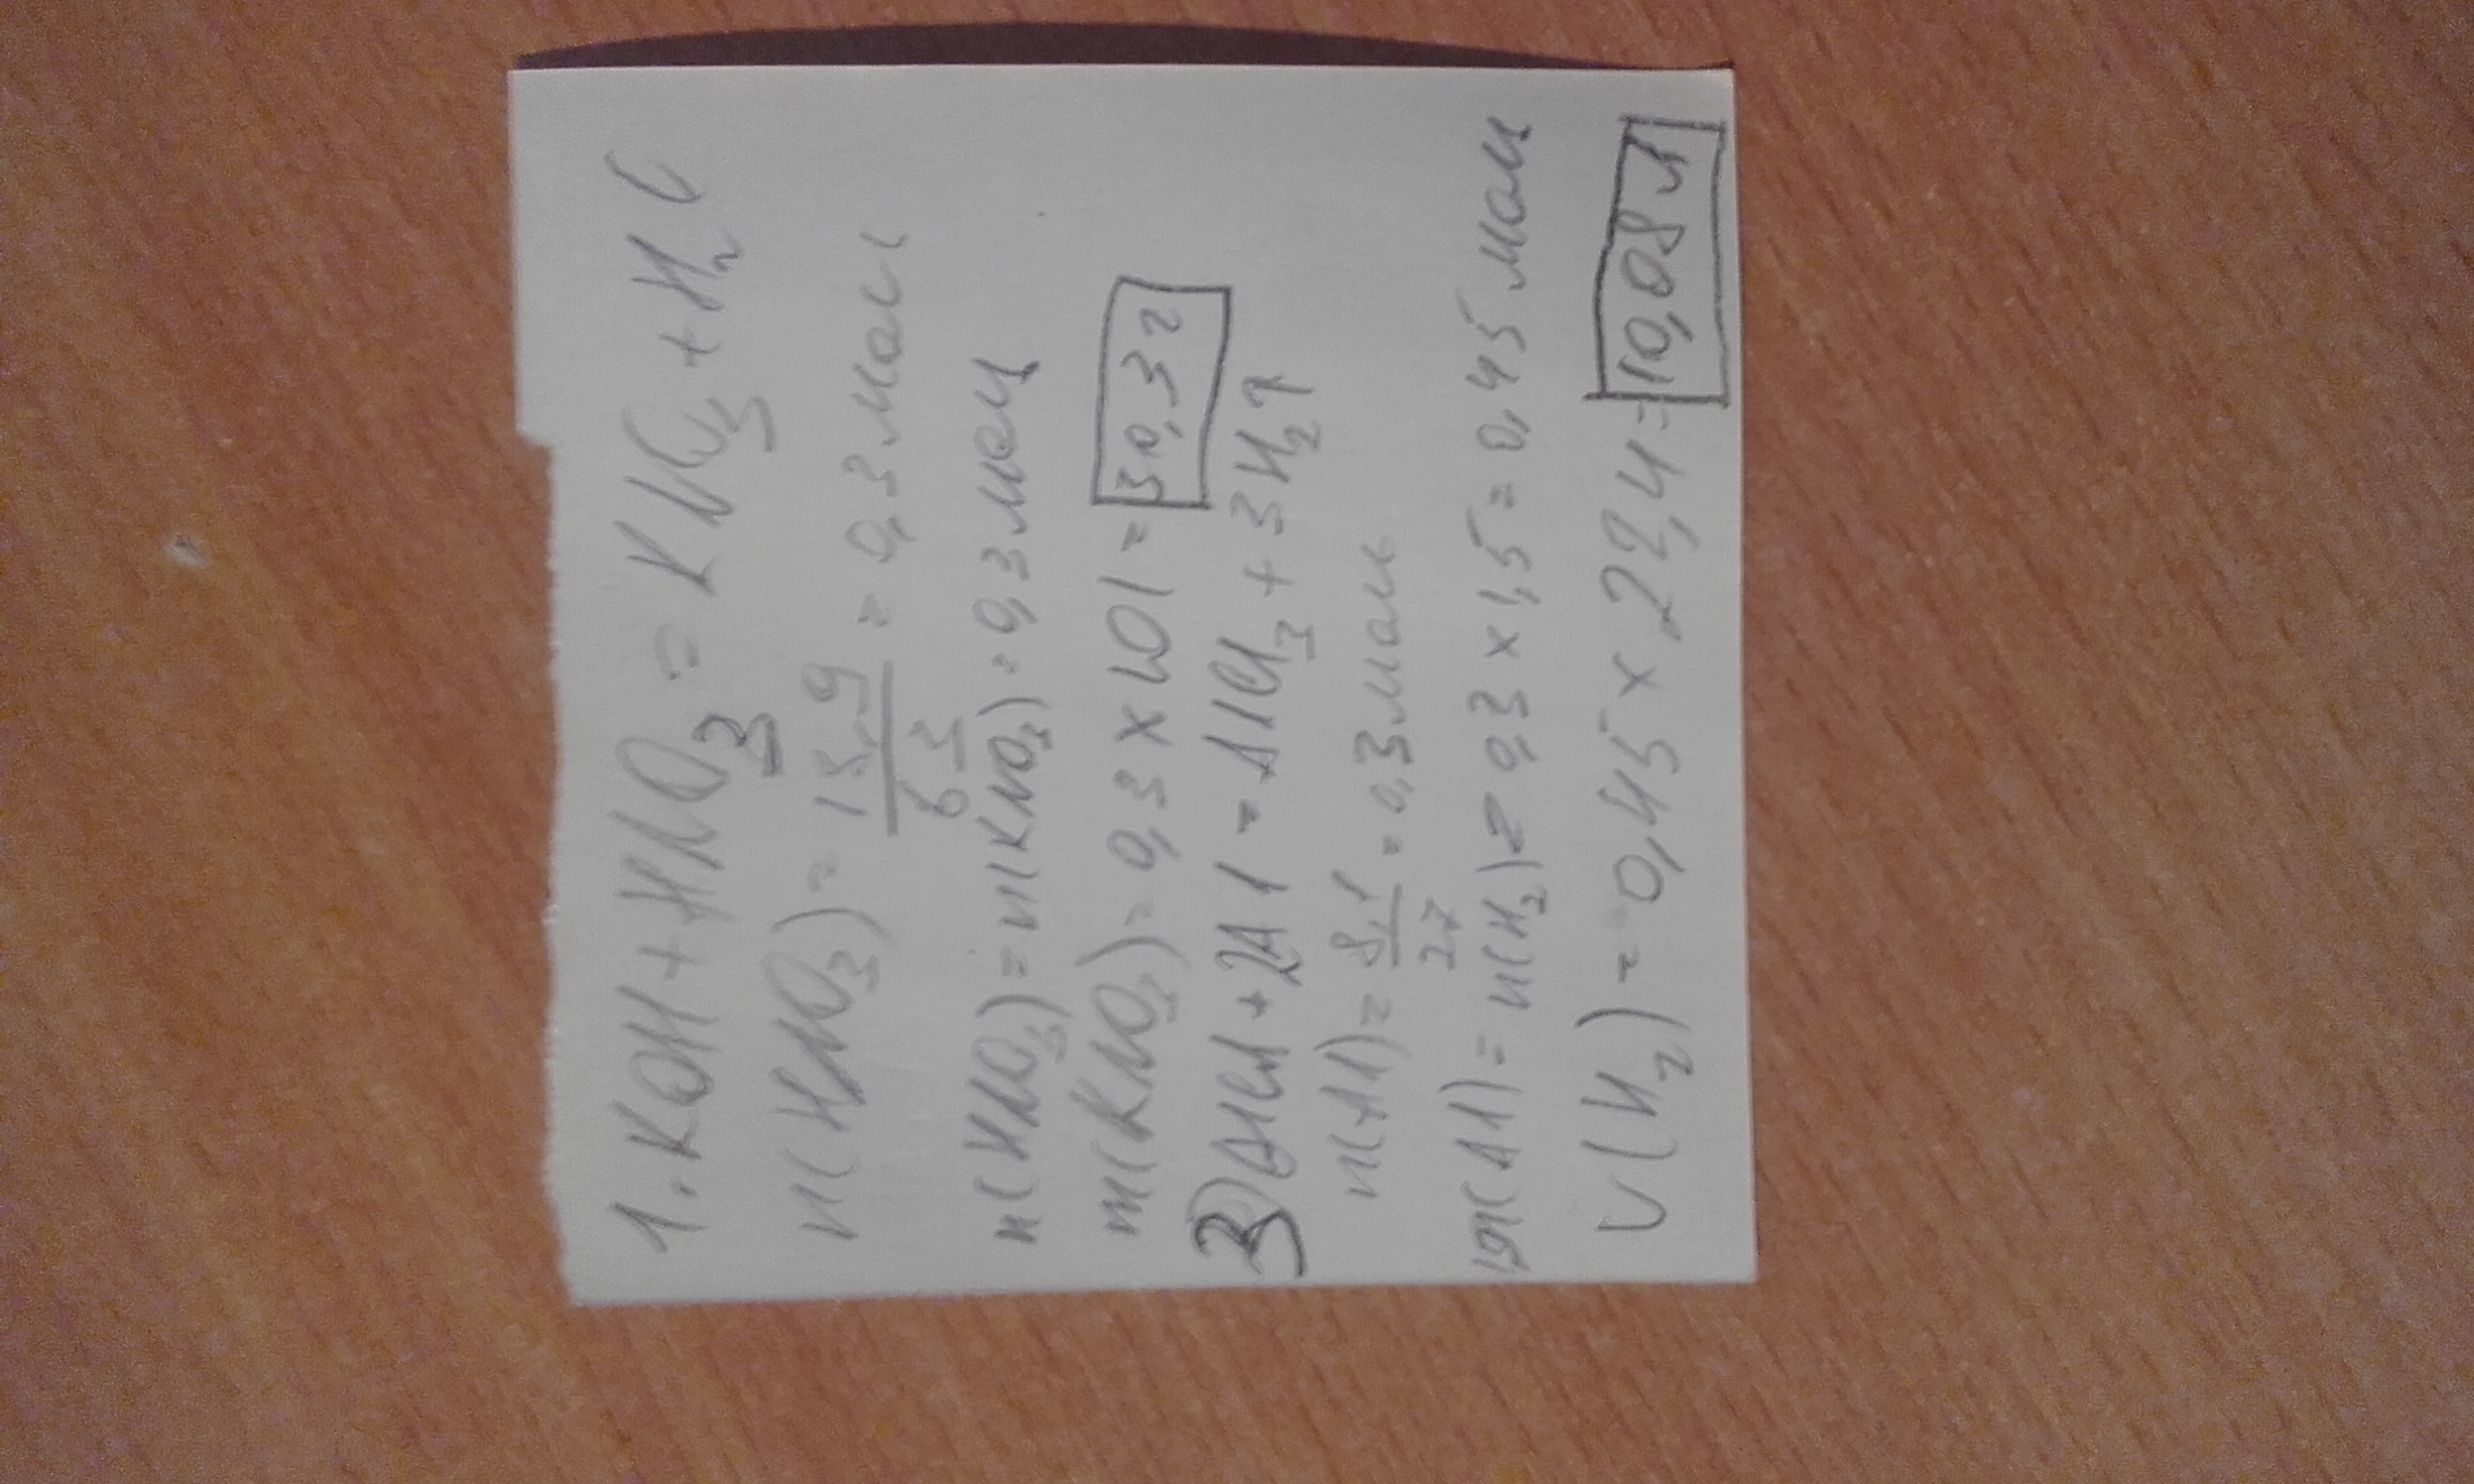 1. KOH + HNO₃ = KNO₃ + H₂O
n(HNO₃) = 18,9/63 = 0,3 моль
n(HNO₃) = n(KNO₃) = 0,3 моль
m(KNO₃) = 0,3 × 101 = 30,3 г
3) 6HCl + 2Al = AlCl₃ + 3H₂↑
n(Al) = 8,1/27 = 0,3 моль
1,5n(Al) = n(H₂) = 0,3 × 1,5 = 0,45 моль
V(H₂) = 0,45 × 22,4 = 10,08 л